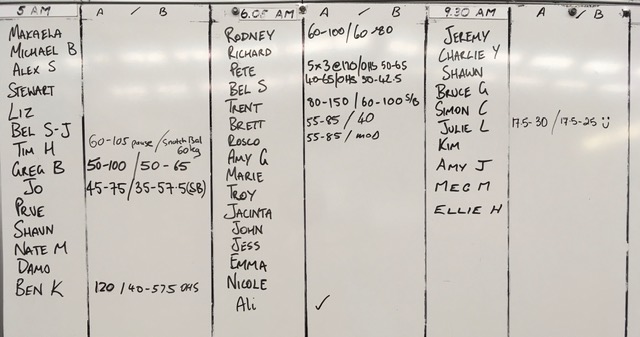 5 AM A / B
MAKAELA
MICHAEL B
ALEX S
STEWART
LIZ
BEL S-J
TIM H 60-105 pause / snatch Bal 60kg
GREG B 50-100 / 50-65
JO 45-75 / 35-57.5 (SB)
PRUE
SHAUN
NATE M
DAMO
BEN K 120 / 40-57.5 OHS
6.05 AM A / B
RODNEY 60-100 / 60-80
RICHARD
PETE 5x3 @ 110 / OHS 50-65
BEL S 40-65 / OHS 30-42.5
TRENT 80-150 / 60-100 S/B
BRETT 55-85 / 40
ROSCO 55-85 / MOD
AMY G
MARIE
TROY
JACINTA
JOHN
JESS
EMMA
NICOLE
ALI ✓
9.30 AM A / B
JEREMY
CHARLIE Y
SHAWN
BRUCE G
SIMON C
JULIE L 17.5-30 / 17.5-25 Ü
KIM
AMY J
MEG M
ELLIE H